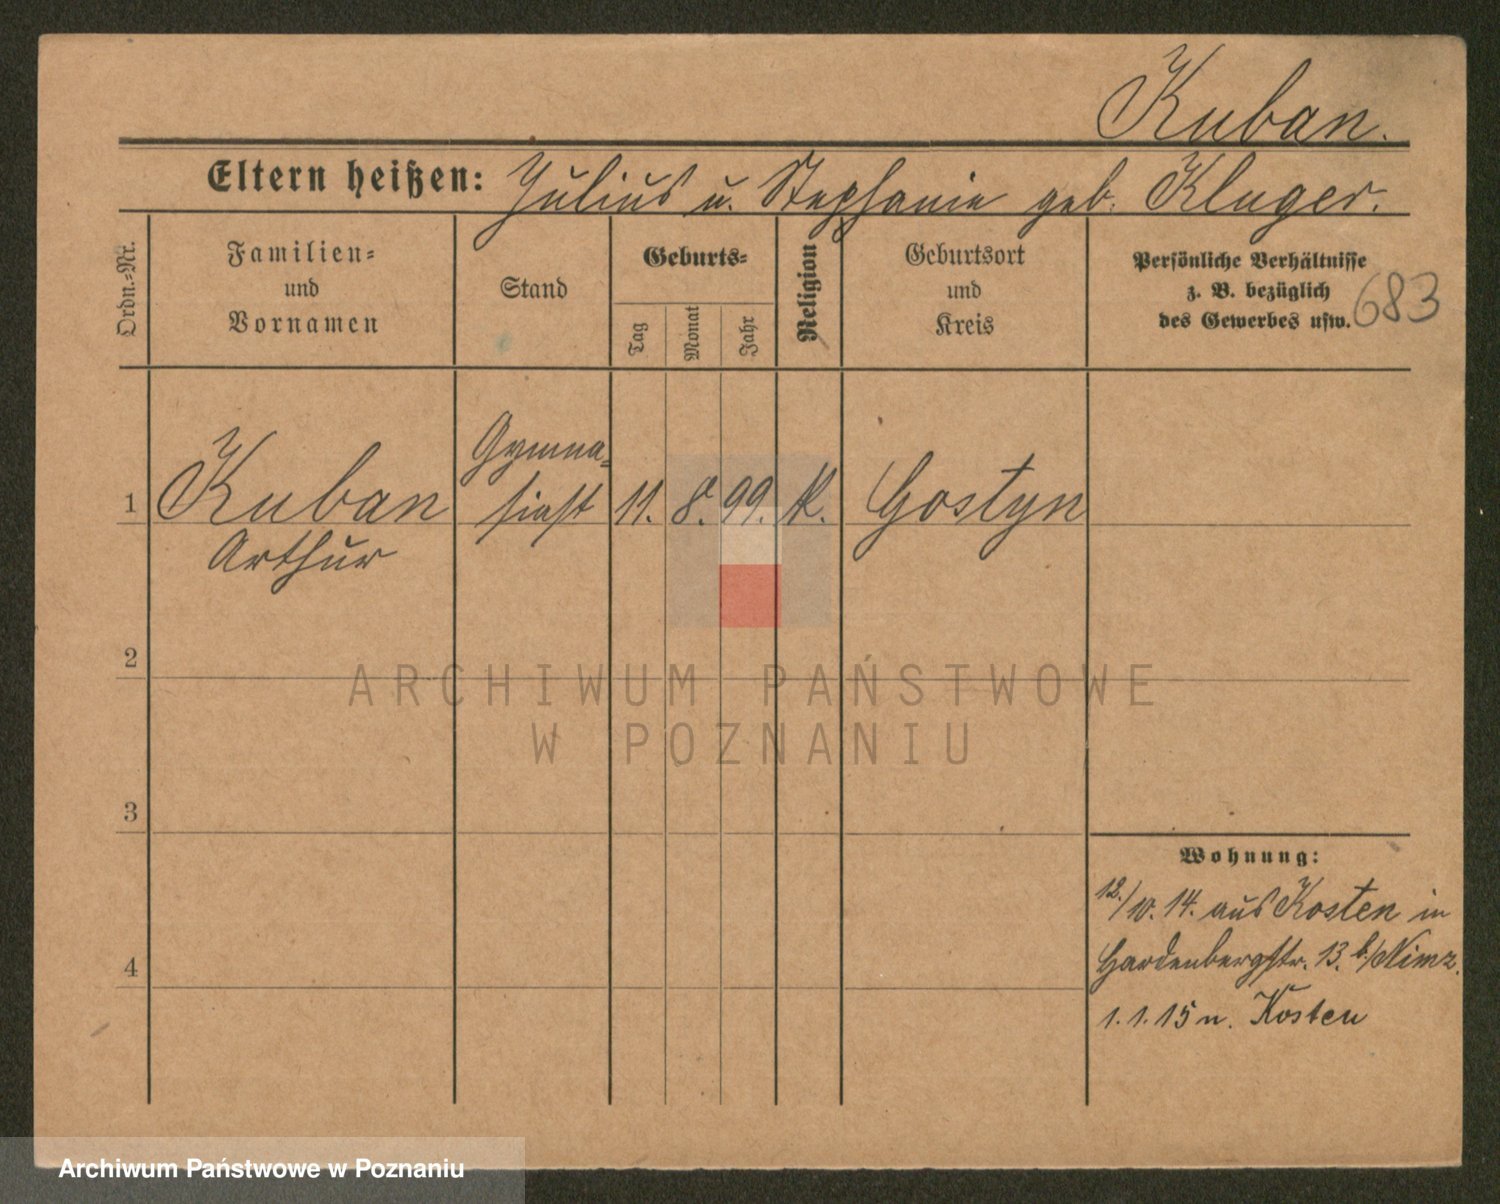 Kuban.
Eltern heißen: Julius u. Stephanie geb. Kluger.
Ordn.-Nr.
Familien-
und
Vornamen
Stand
Geburts-
Tag
Monat
Jahr
Religion
Geburtsort
und
Kreis
Persönliche Verhältnisse
z. B. bezüglich
des Gewerbes usw.
683
Gymna-
1 Kuban siast 11. 8. 99. K. Gostyn
Arthur
2
ARCHIWUM PAŃSTWOWE
W POZNANIU
3
Wohnung:
12./10. 14. aus Kosten in
Hardenbergstr. 13. b/Nimz.
4
1. 1. 15 n. Kosten
Archiwum Państwowe w Poznaniu